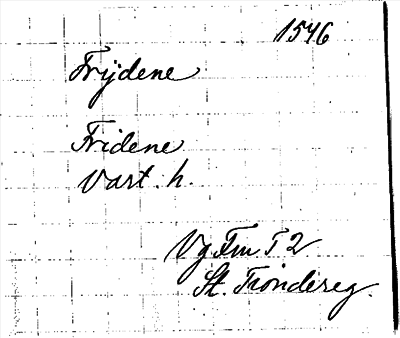 1546
Frijdene
Fridene
Vart. h.
Vg Fru T 2
St. Tiondereg.